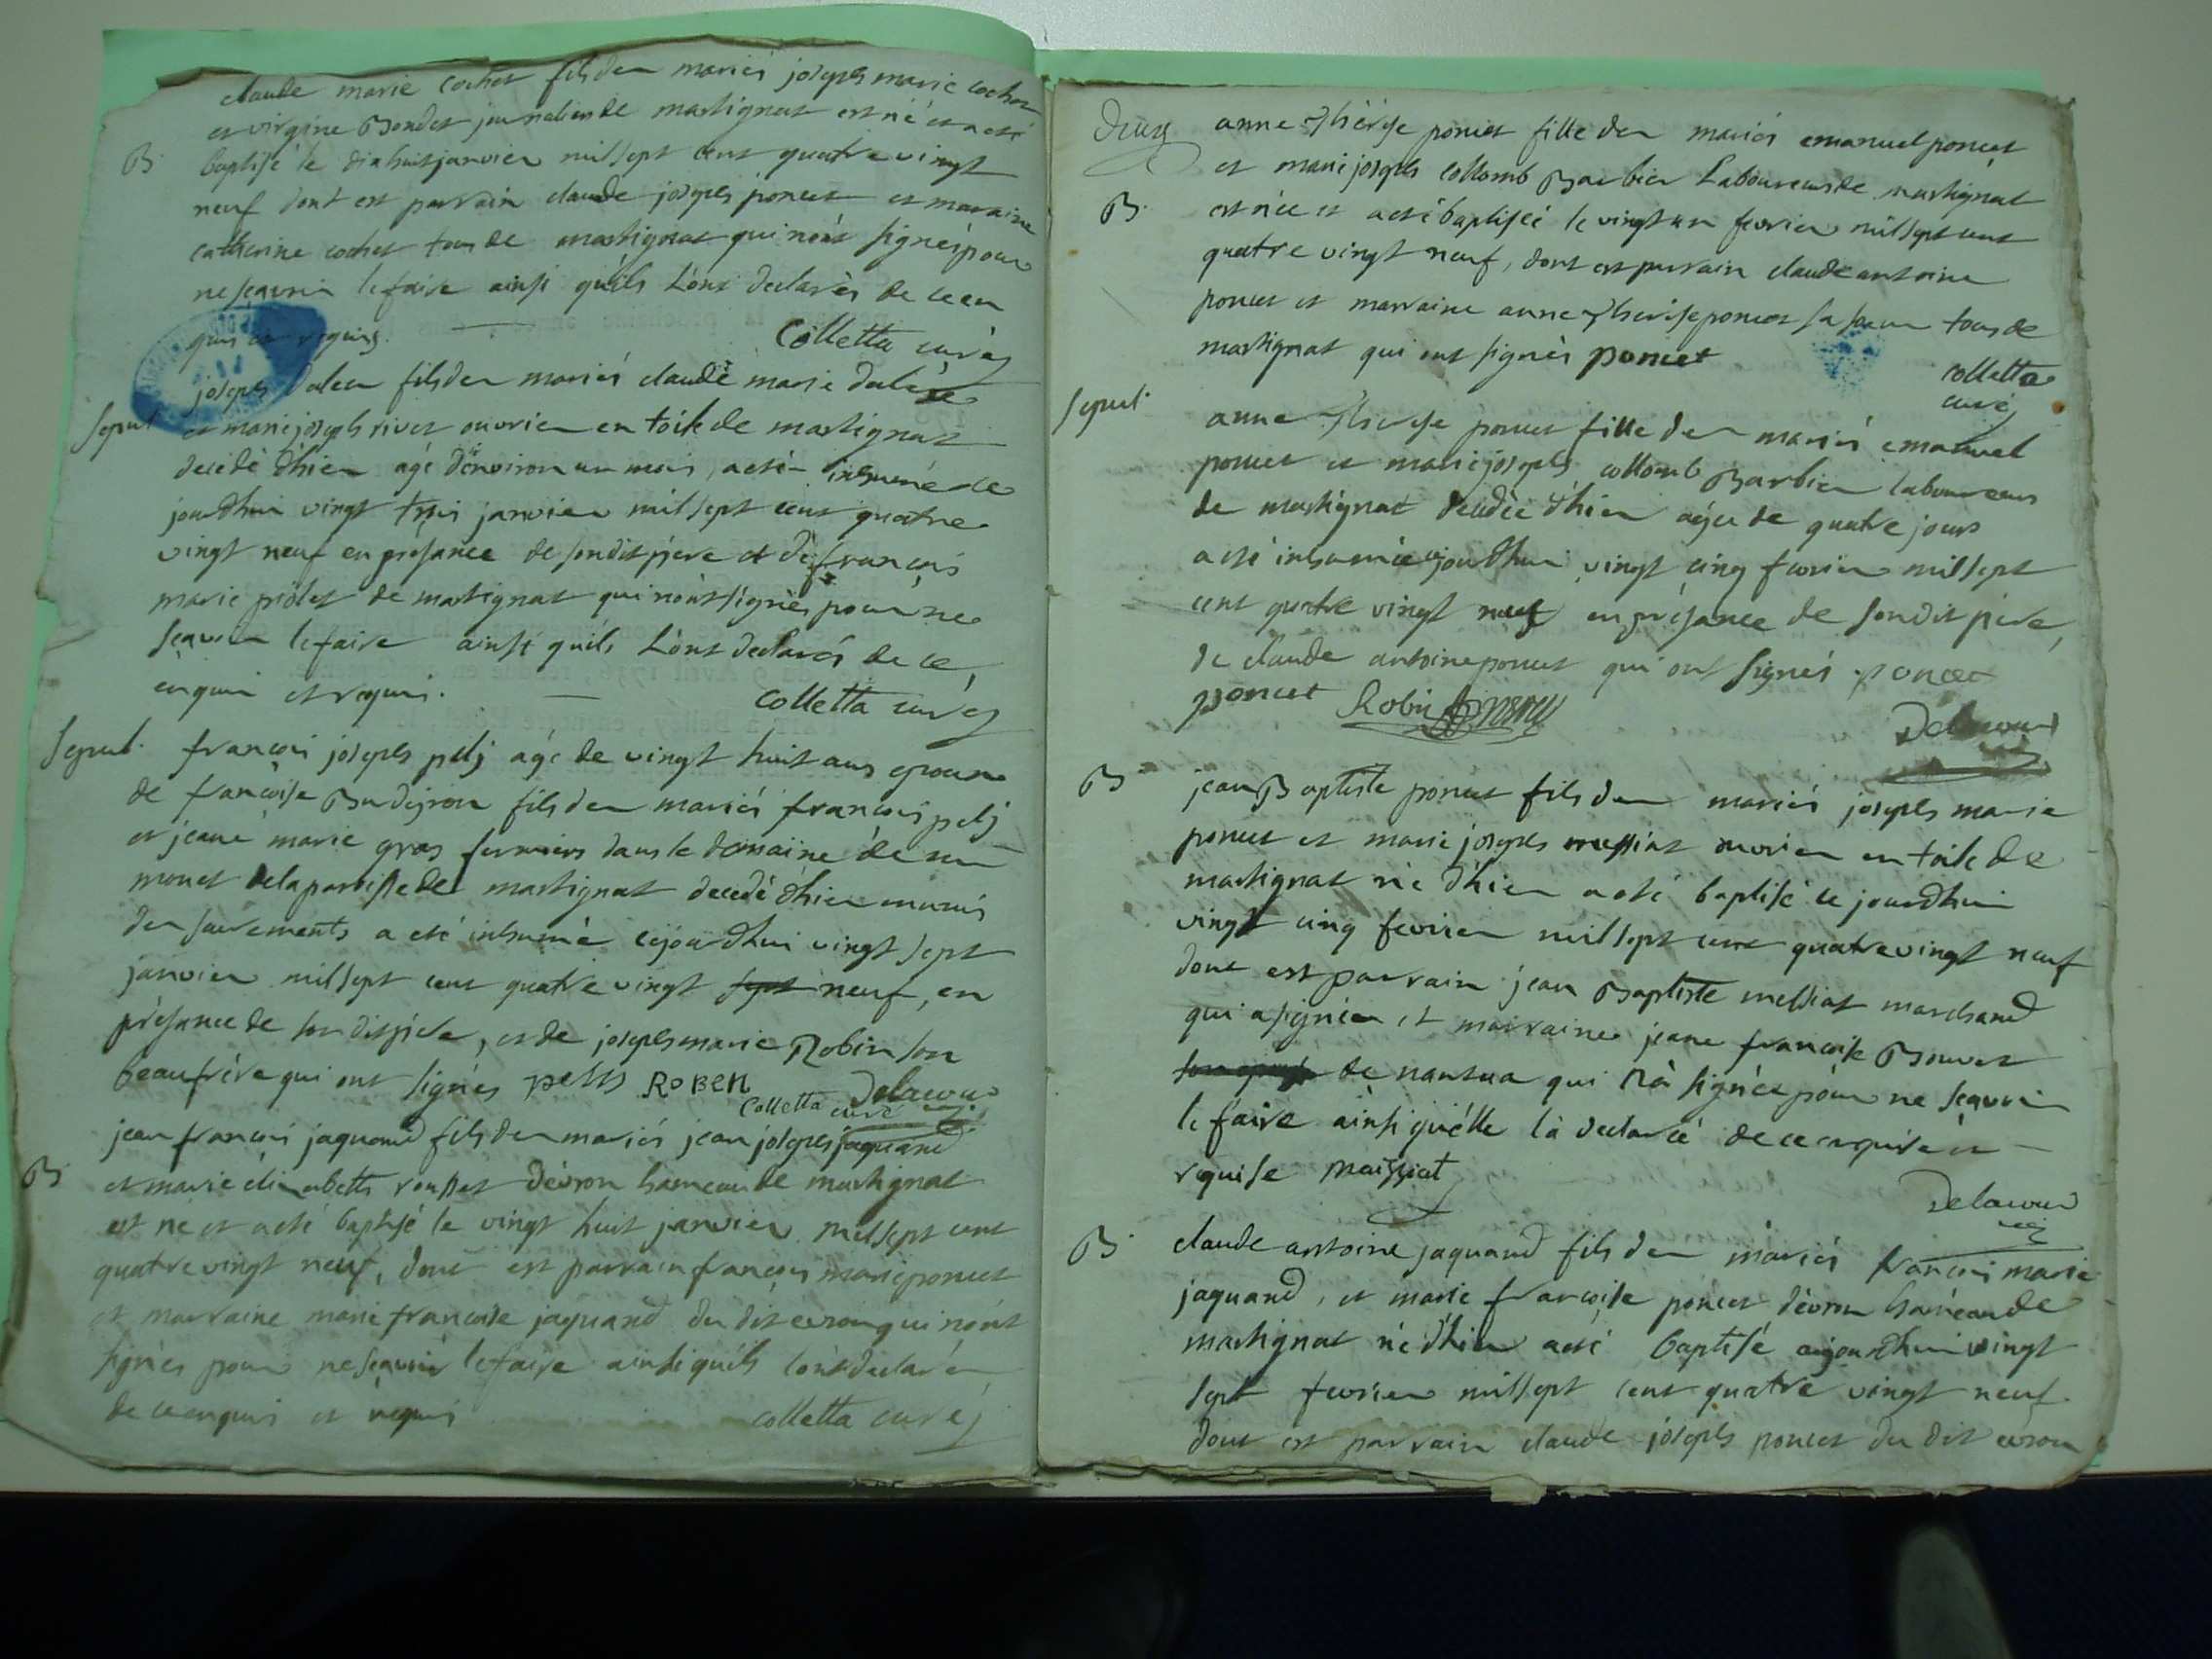 claude marie cochet fils des mariés joseph marie cochet
et virgine Bondet journalier de martignat est né et a eté
B. baptisé le dix huit janvier mil sept cent quatre vingt
neuf dont est parrain claude joseph poncet et maraine
catherine cochet tous de martignat qui n'ont signés pour
ne sçavoir le faire ainsi qu'ils l'ont declarés de ce en
quis et requis. colletta curé
joseph fils des mariés claude marie
Sepul. et marie joseph rivet ouvrier en toile de martignat
decedé d'hier agé d'environ un mois, a eté inhumé ce
jourd'hui vingt trois janvier mil sept cent quatre
vingt neuf en présance de son dit père et de françois
marie piolet de martignat qui n'ont signés pour ne
sçavoir le faire ainsi qu'ils l'ont declarés de ce
enquis et requis. colletta curé
Sepul. françois joseph pelj agé de vingt huit ans epoux
de françoise fils des mariés françois pelj
et jeane marie gras fermiers dans le domaine de
monet de la paroisse de martignat decedé d'hier munis
des sacrements a eté inhumé cejourd'hui vingt sept
janvier mil sept cent quatre vingt sept neuf, en
présance de son dit père, et de joseph marie Robin son
beaufrère qui ont signés ROBEN
colletta curé Delacour
jean françois jaquand fils des mariés jean joseph jaquand
B. et marie elizabeth rousset d'evron hameau de martignat
est né et a eté baptisé le vingt huit janvier mil sept cent
quatre vingt neuf, dont est parrain françois marie poncet
et marraine marie françoise jaquand du dit evron qui n'ont
signés pour ne sçavoir le faire ainsi qu'ils l'ont declarés
de ce enquis et requis colletta curé
Deux anne Thérèse poncet fille des mariés emanuel poncet
et marie joseph collomb Barbier Laboureur de martignat
B. est née et a eté baptisée le vingt un fevrier mil sept cent
quatre vingt neuf, dont est parrain claude antoine
poncet et marraine anne Therèse poncet sa soeur tous de
martignat qui ont signés poncet
colletta
curé
Sepul. anne Therese poncet fille des mariés emanuel
poncet et marie joseph collomb Barbier laboureur
de martignat decedée d'hier agée de quatre jours
a eté inhumée cejourd'hui vingt cinq fevrier mil sept
cent quatre vingt neuf en présance de son dit père,
de claude antoine poncet qui ont signés poncet
poncet Robin
Delacour
B. jean Baptiste poncet fils des mariés joseph marie
poncet et marie joseph messiat ouvrier en toile de
martignat né d'hier a eté baptisé ce jourd'hui
vingt cinq fevrier mil sept cent quatre vingt neuf
dont est parrain jean Baptiste messiat marchand
qui a signé et marraine jeane françoise Bouvet
de nantua qui n'a signée pour ne sçavoir
le faire ainsi qu'elle l'a declaré de ce enquise et
requise maissiat
Delacour
B. claude antoine jaquand fils des mariés françois marie
jaquand, et marie françoise poncet d'evron hameau de
martignat né d'hier a eté baptisé aujourd'hui vingt
sept fevrier mil sept cent quatre vingt neuf
dont est parrain claude joseph poncet du dit evron